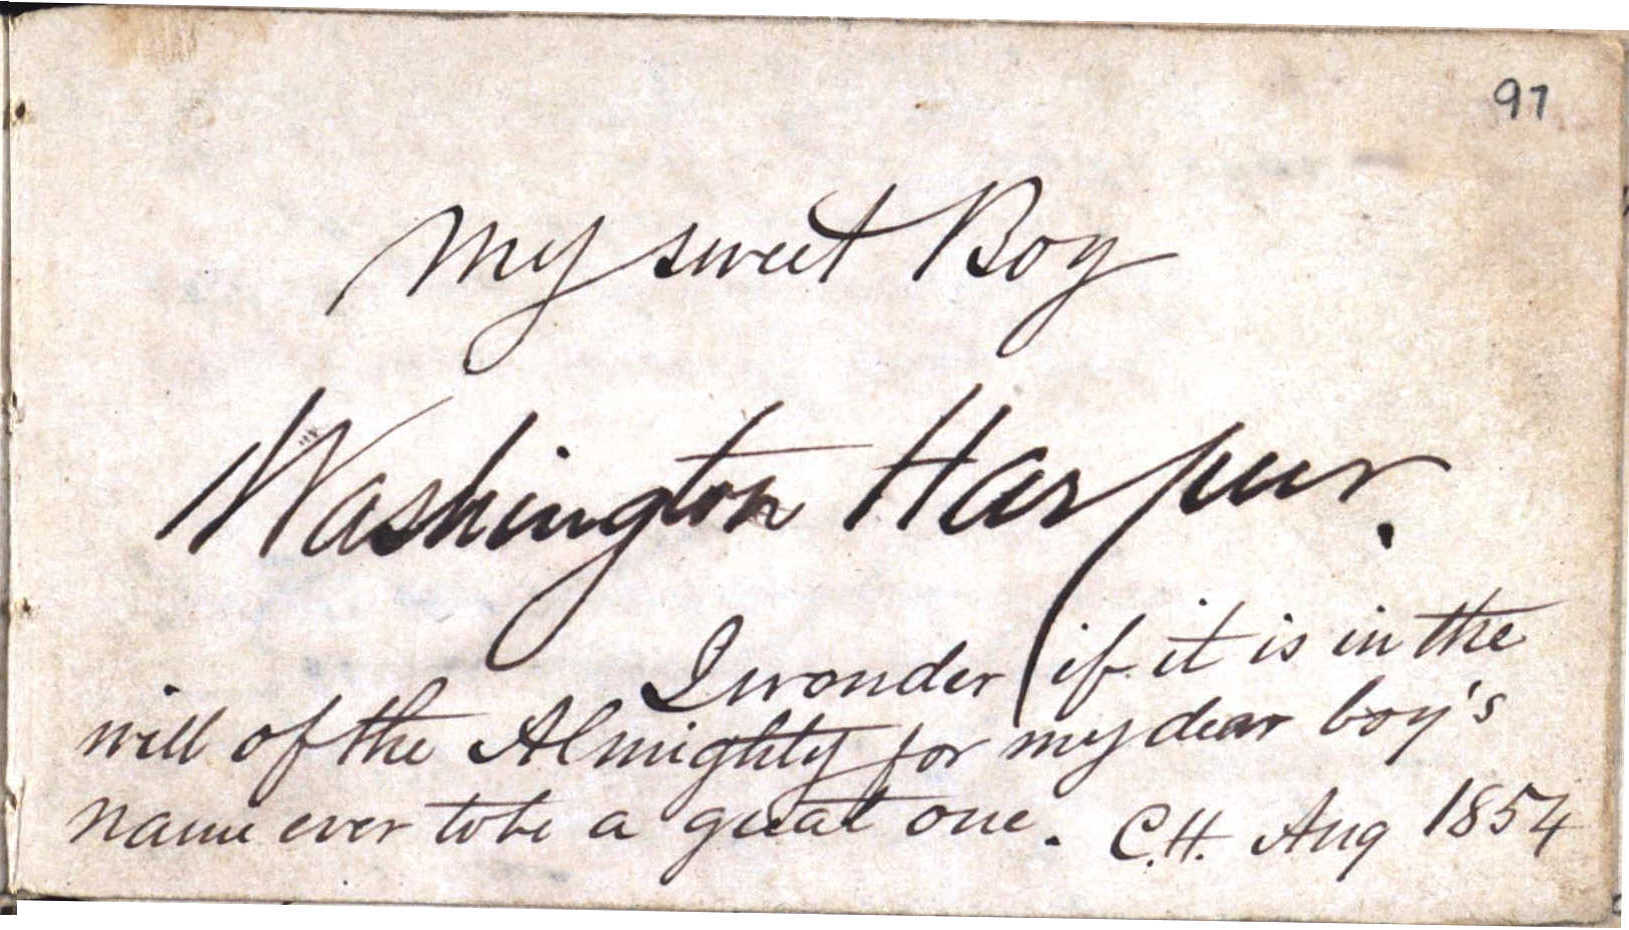 97
My sweet Boy
Washington Harpur.
I wonder if it is in the
will of the Almighty for my dear boy's
name ever to be a great one. C.H. Aug 1854